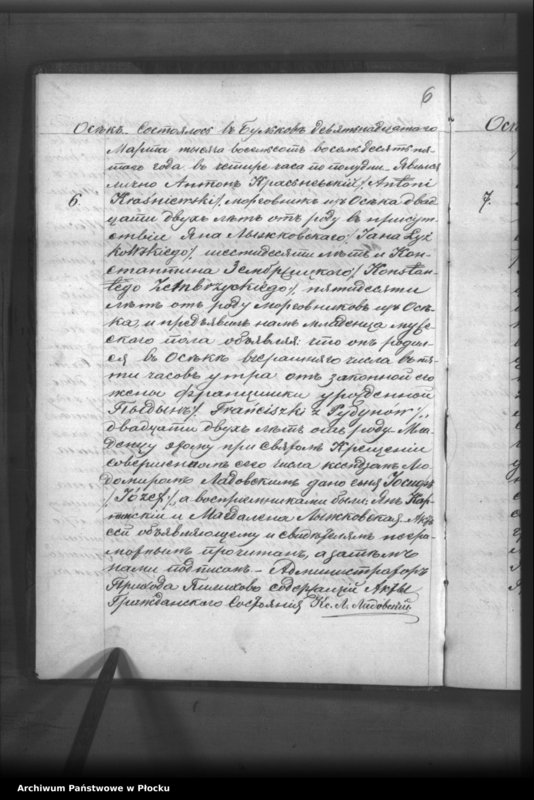 6
Осѣкъ. Состоялось въ Бульковѣ девятнадцатаго
Марта тысяча восемсотъ восемдесятъ пя-
таго года, въ четыре часа по полудни. Явился
6. лично Антонъ Красневскій /Antoni
Kraśniewski/ морговникъ изъ Оська двад-
цати двухъ лѣтъ отъ роду въ присут-
ствіи Яна Лыжковскаго /Jana Łyż
kowskiego/ шестидесяти лѣтъ и Кон-
стантина Зембржицкаго /Konstan-
tego Zembrzyckiego/ пятидесяти
лѣтъ отъ роду морговниковъ изъ Ось-
ка, и предъявилъ намъ младенца муже-
скаго пола объявляя: что онъ родил-
ся въ Оськѣ вчерашняго числа въ пя-
ти часовъ утра отъ законной его
жены Францишки урожденной
/Franciszki z
двадцати двухъ лѣтъ отъ роду. Мла-
денцу этому при Святомъ Крещеніи
совершенномъ сего числа ксендзомъ
Ладовскимъ дано имя Іосифъ
/Józef/, а воспріемниками были: Янъ
и Магдалена Лыжковская. Актъ
сей объявляющему и свидѣтелямъ негра-
мотнымъ прочитанъ, а затѣмъ
нами подписанъ. Администраторъ
Прихода содержащій Акты
Гражданскаго Состоянія Кс. Л. Ладовскій
Осѣ
7.
Archiwum Państwowe w Płocku